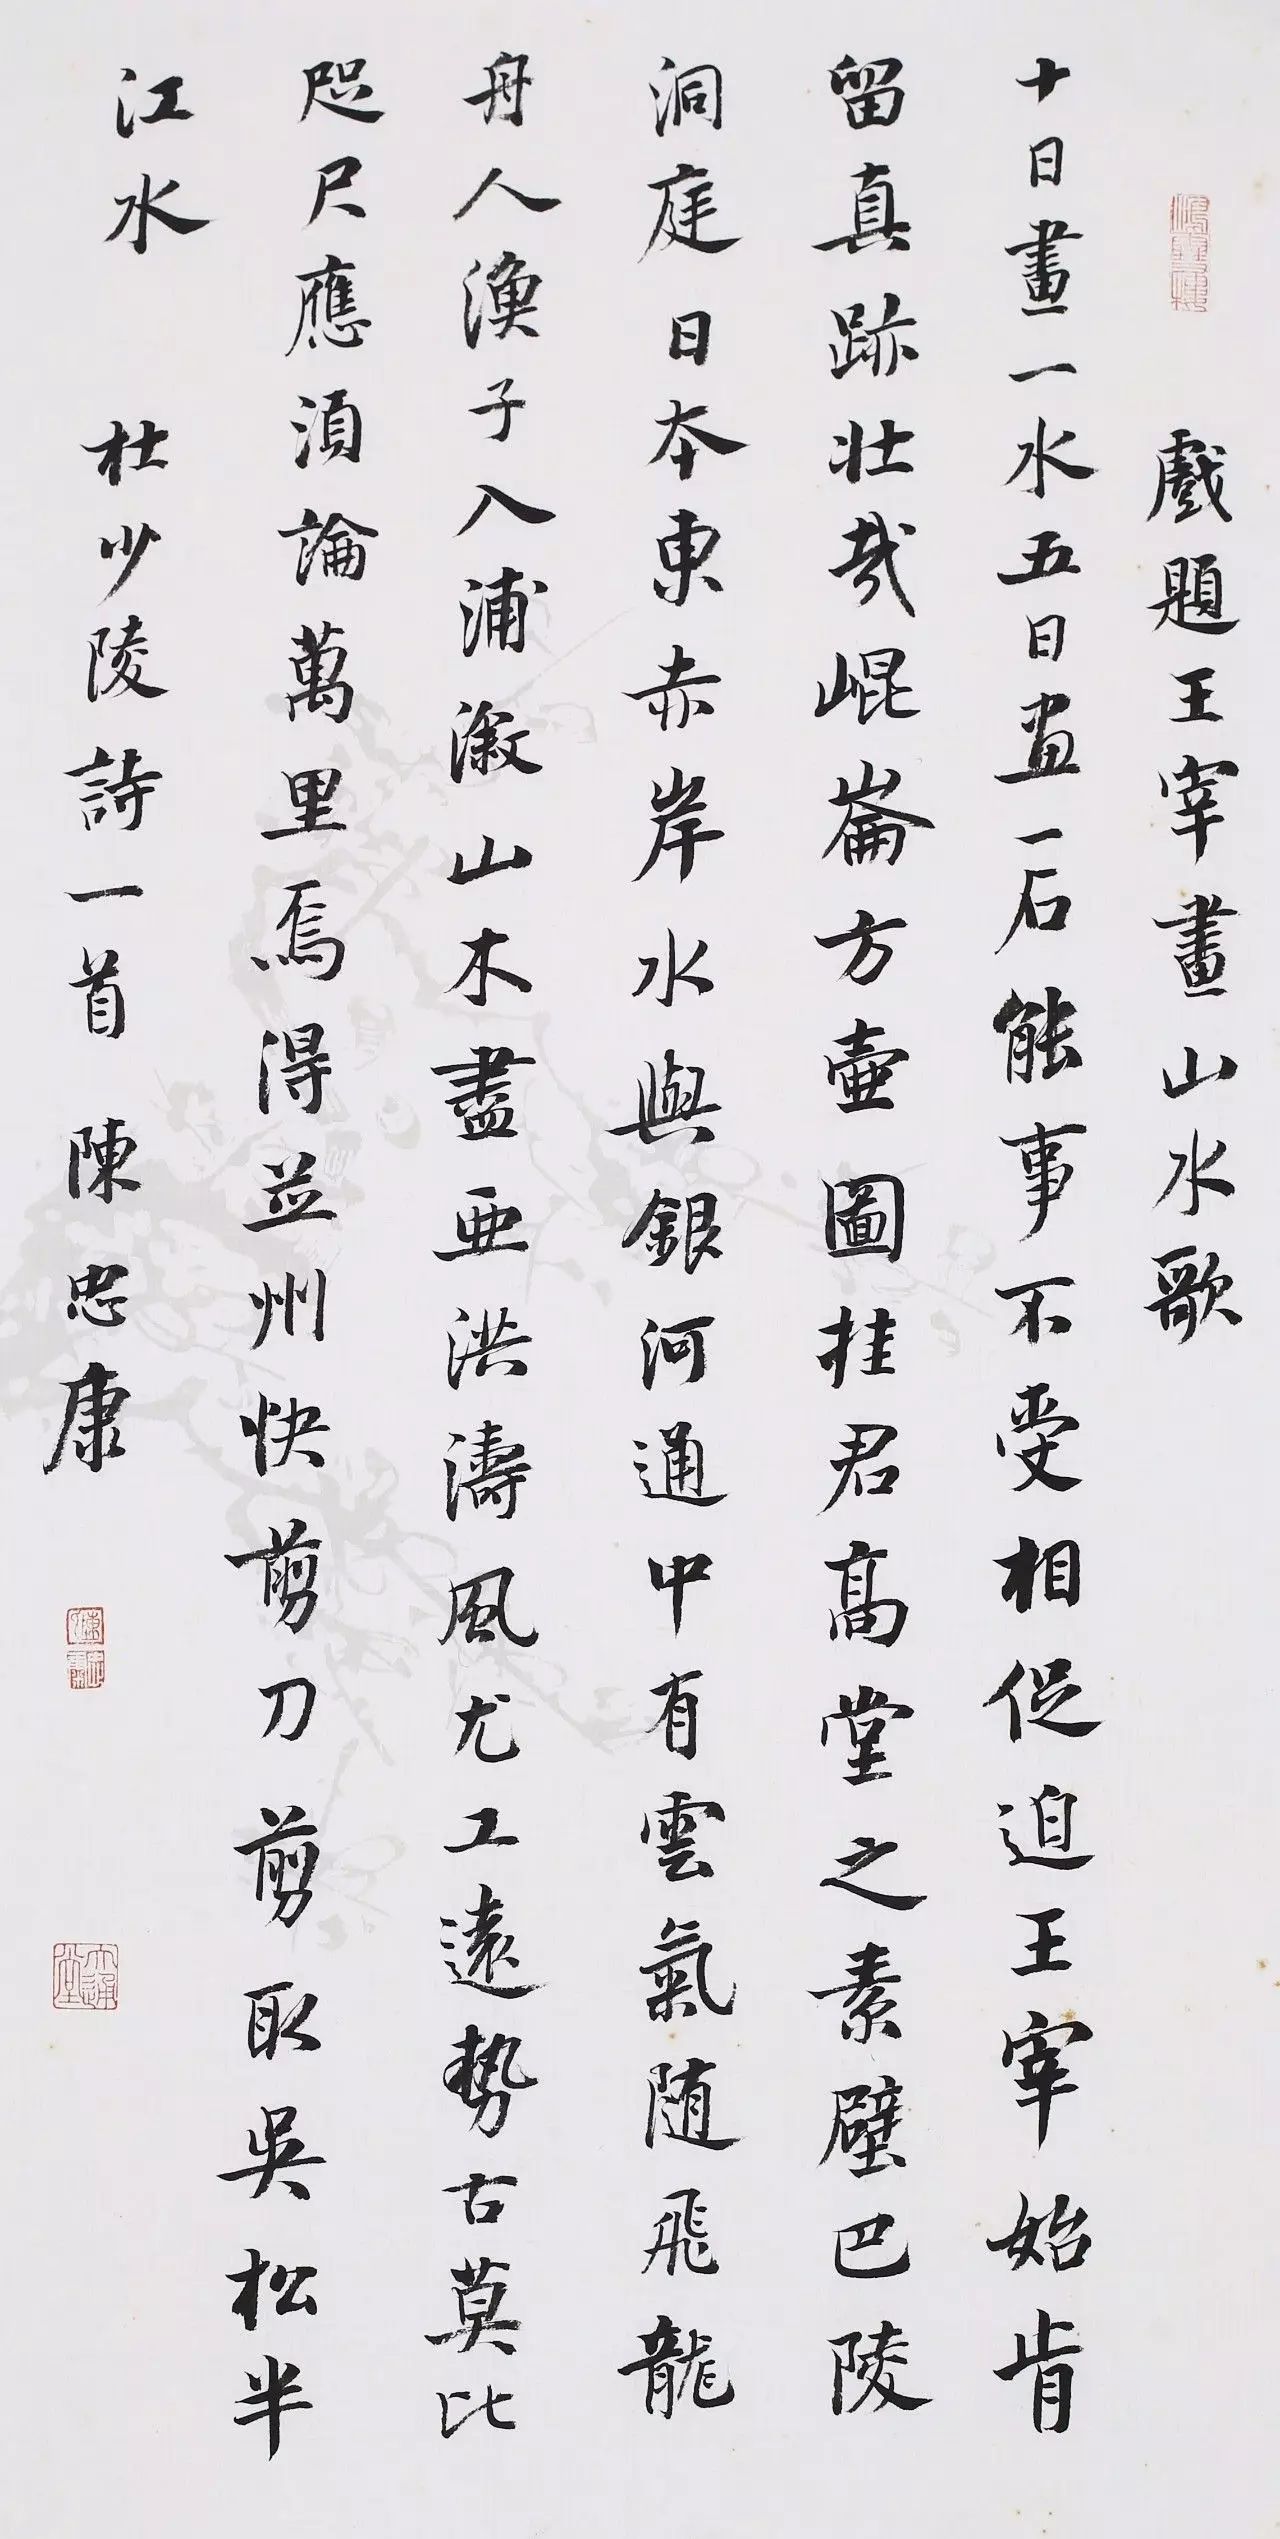 戲題王宰畫山水歌
十日畫一水五日畫一石能事不受相促迫王宰始肯
留真跡壯哉崐崙方壺圖挂君高堂之素壁巴陵
洞庭日本東赤岸水與銀河通中有雲氣随飛龍
舟人漁子入浦溆山木盡亞洪濤風尤工遠势古莫比
咫尺應須論萬里焉得並州快剪刀剪取吳松半
江水 杜少陵詩一首 陳忠康